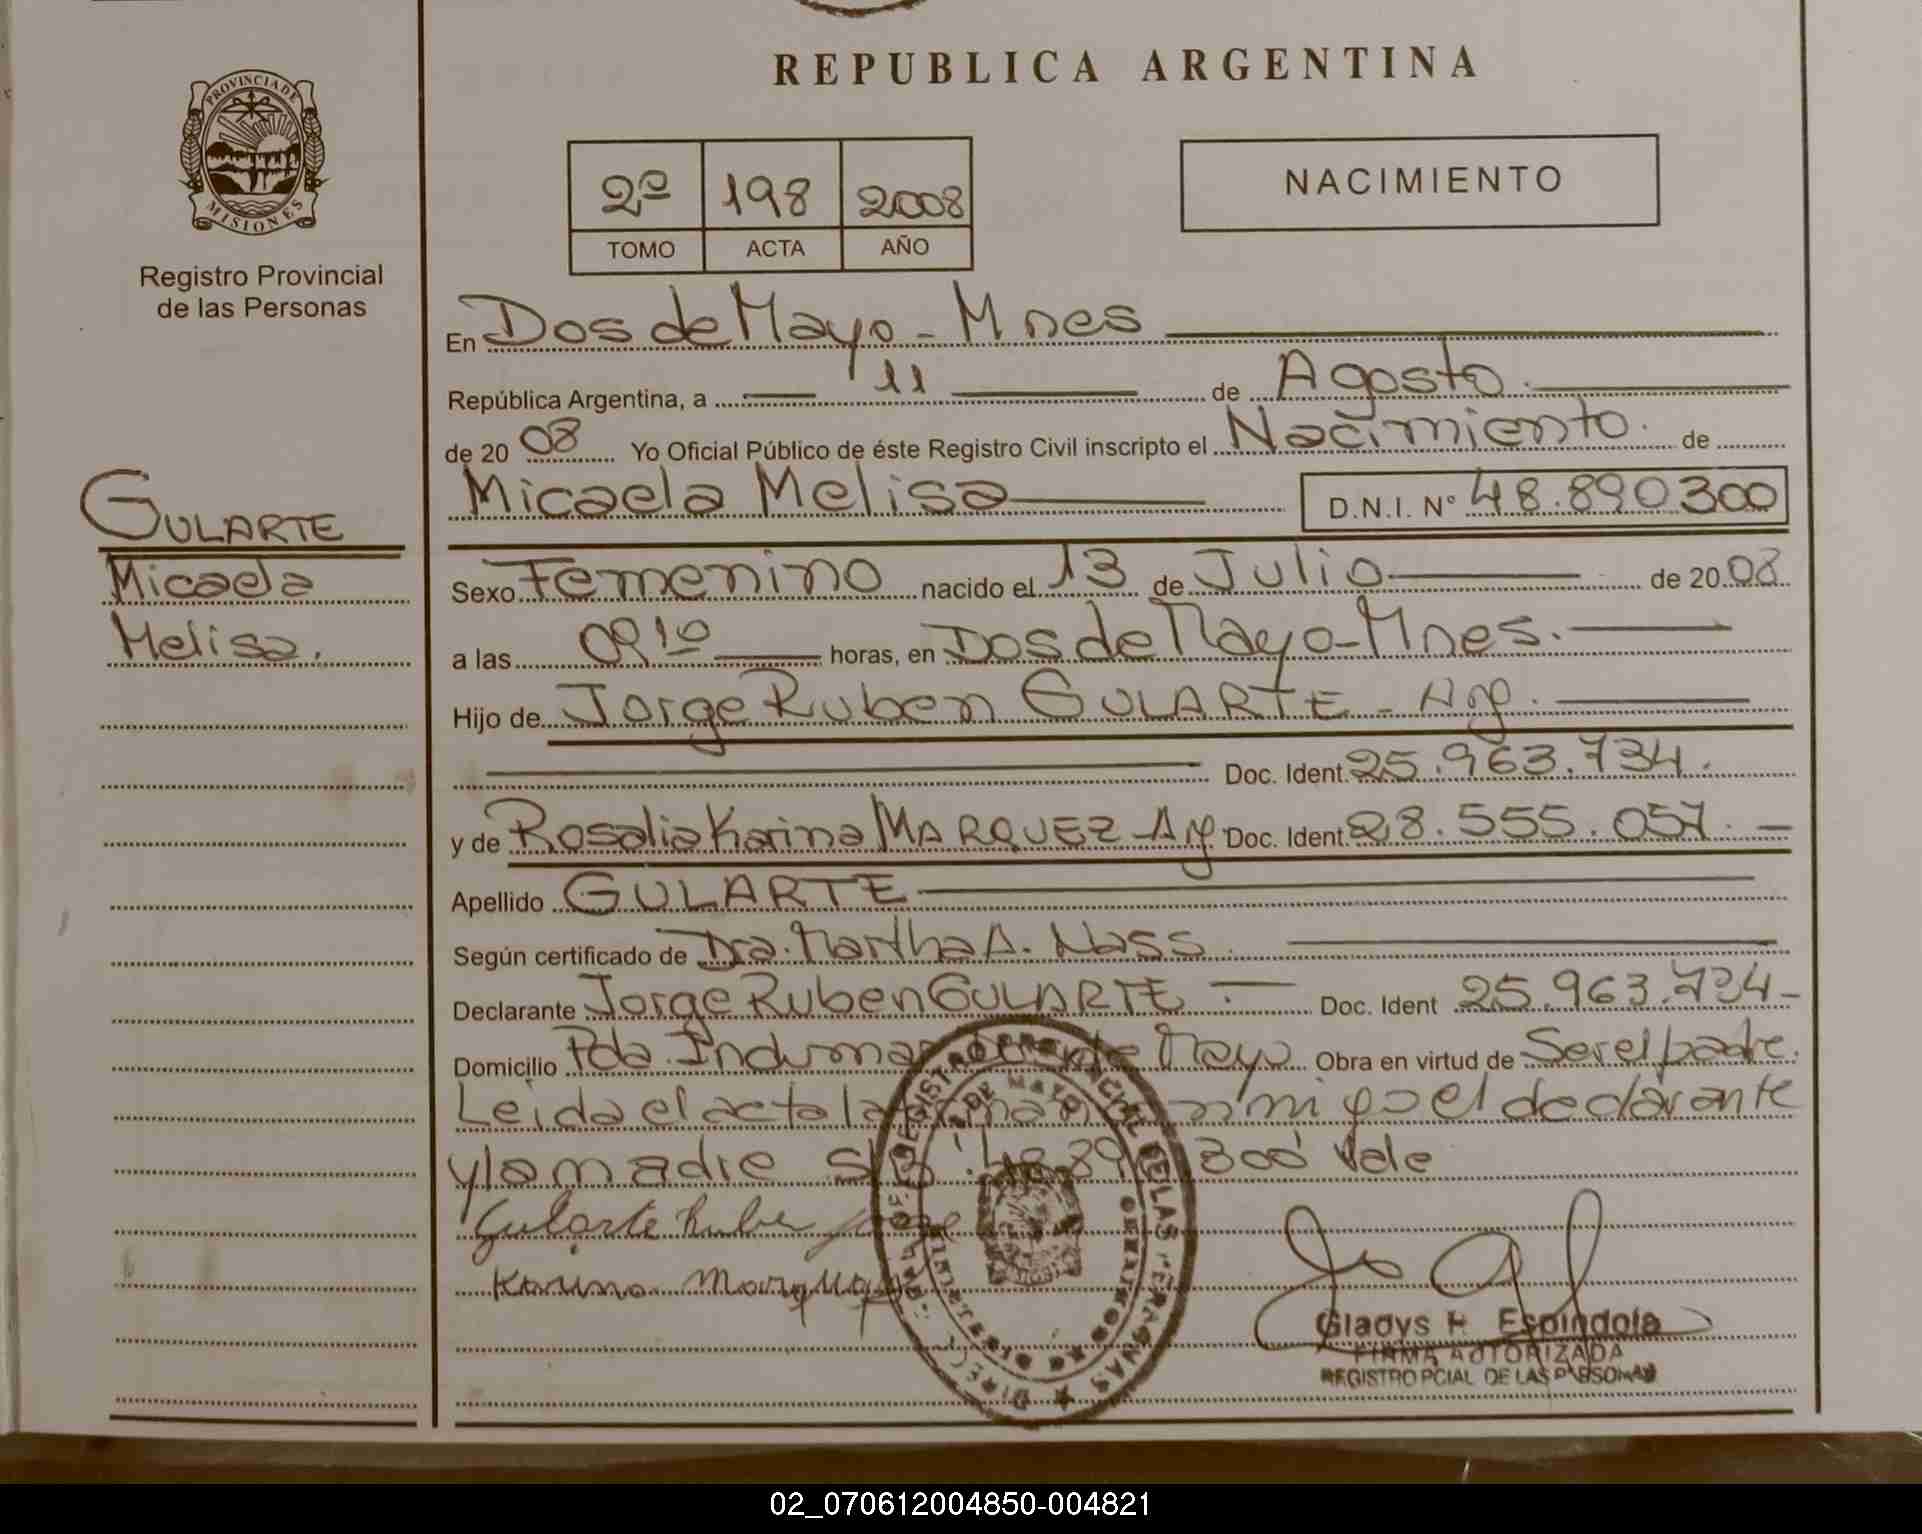 REPUBLICA ARGENTINA
PROVINCIA DE
MISIONES
Registro Provincial
de las Personas
2º 198 2008
TOMO ACTA AÑO
NACIMIENTO
GULARTE
Micaela
Melisa.
En Dos de Mayo - Mnes
República Argentina, a 11 de Agosto.
de 20 08 Yo Oficial Público de éste Registro Civil inscripto el Nacimiento. de
Micaela Melisa D.N.I. Nº 48.890300
Sexo Femenino nacido el 13 de Julio de 20 08
a las 09 10 horas, en Dos de Mayo - Mnes.
Hijo de Jorge Ruben GULARTE - Arg.
Doc. Ident. 25.963.734.
y de Rosalia Karina MARQUEZ - Arg. Doc. Ident. 28.555.057. -
Apellido GULARTE
Según certificado de Dra. Martha A. Nass.
Declarante Jorge Ruben GULARTE. - Doc. Ident 25.963.734 -
Domicilio Pda. Indumar Dos de Mayo Obra en virtud de Ser el padre.
Leida el acta la firman conmigo el declarante
y la madre S/R: 48.890300 Vale
Gularte Ruben Jorge
Karina Marquez
REGISTRO PROVINCIAL DE LAS PERSONAS
DOS DE MAYO
Gladys H. Espindola
FIRMA AUTORIZADA
REGISTRO PCIAL. DE LAS PERSONAS
02_070612004850-004821